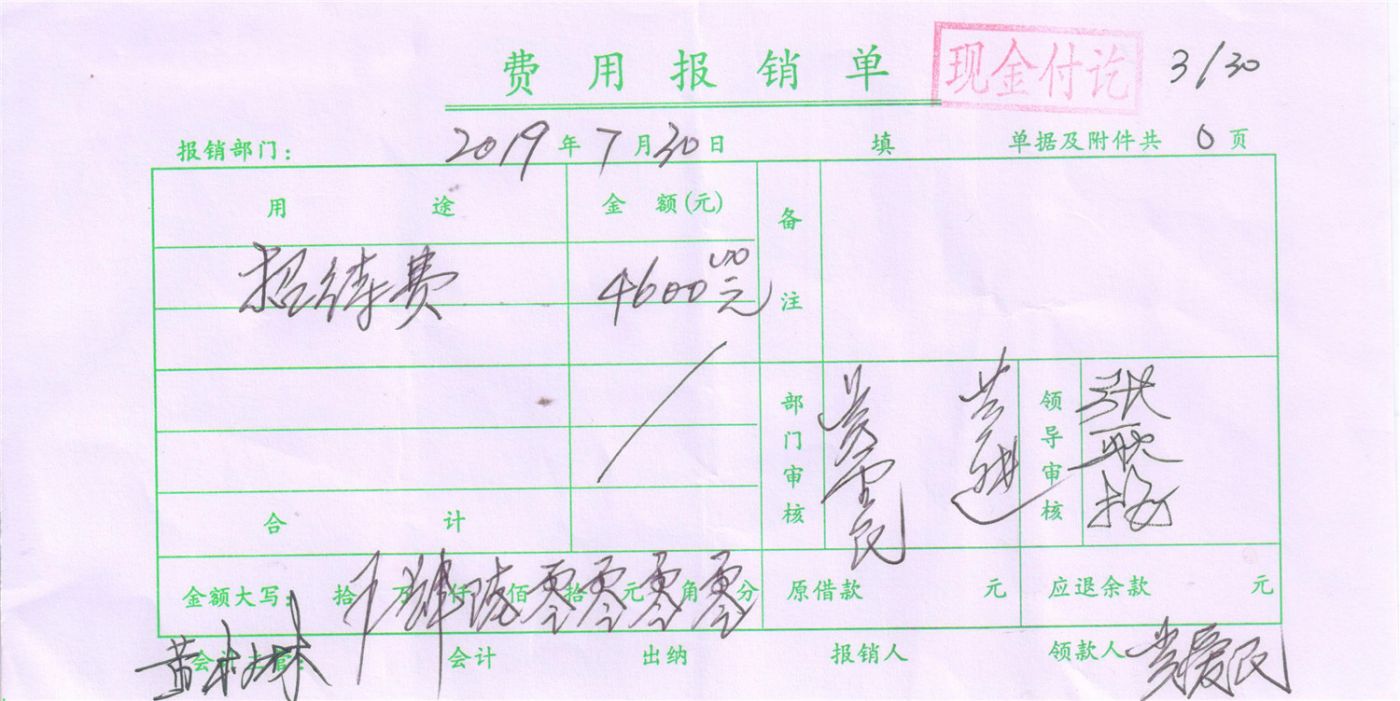 费用报销单 现金付讫 3/30
报销部门： 2019年7月30日 填 单据及附件共 0 页
用途 金额(元) 备注
招待费 4600元
部门审核 领导审核
合计
金额大写： 拾 万 肆仟 陆佰 零拾 零元 零角 零分 原借款 元 应退余款 元
会计主管： 会计 出纳 报销人 领款人